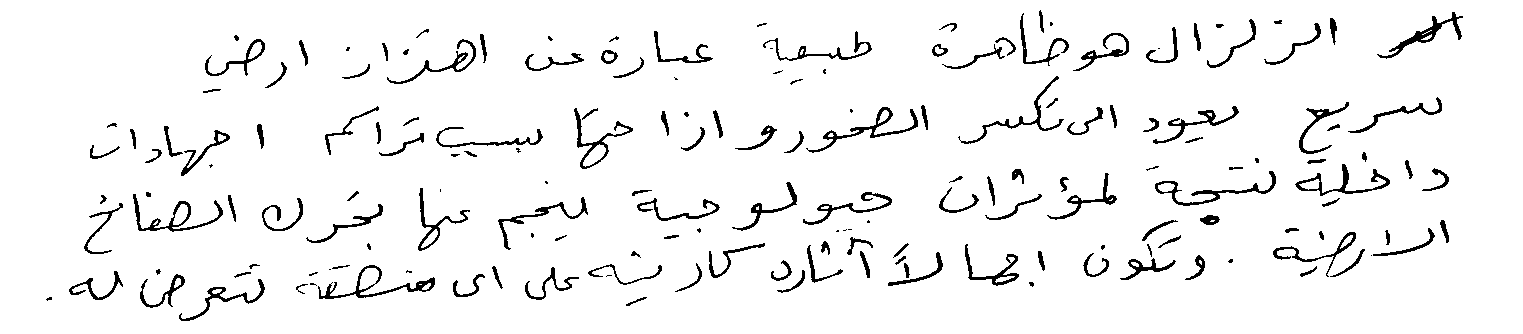 الزلزال هو ظاهرة طبيعية عبارة عن اهتزاز ارضي
سريع يعود الى تكسر الصخور و ازاحتها بسبب تراكم اجهادات
داخلية نتيجة لمؤثرات جيولوجية ينجم عنها تحرك الصفائح
الارضية . وتكون اجمالاً آثاره كارثية على اي منطقة تتعرض له .